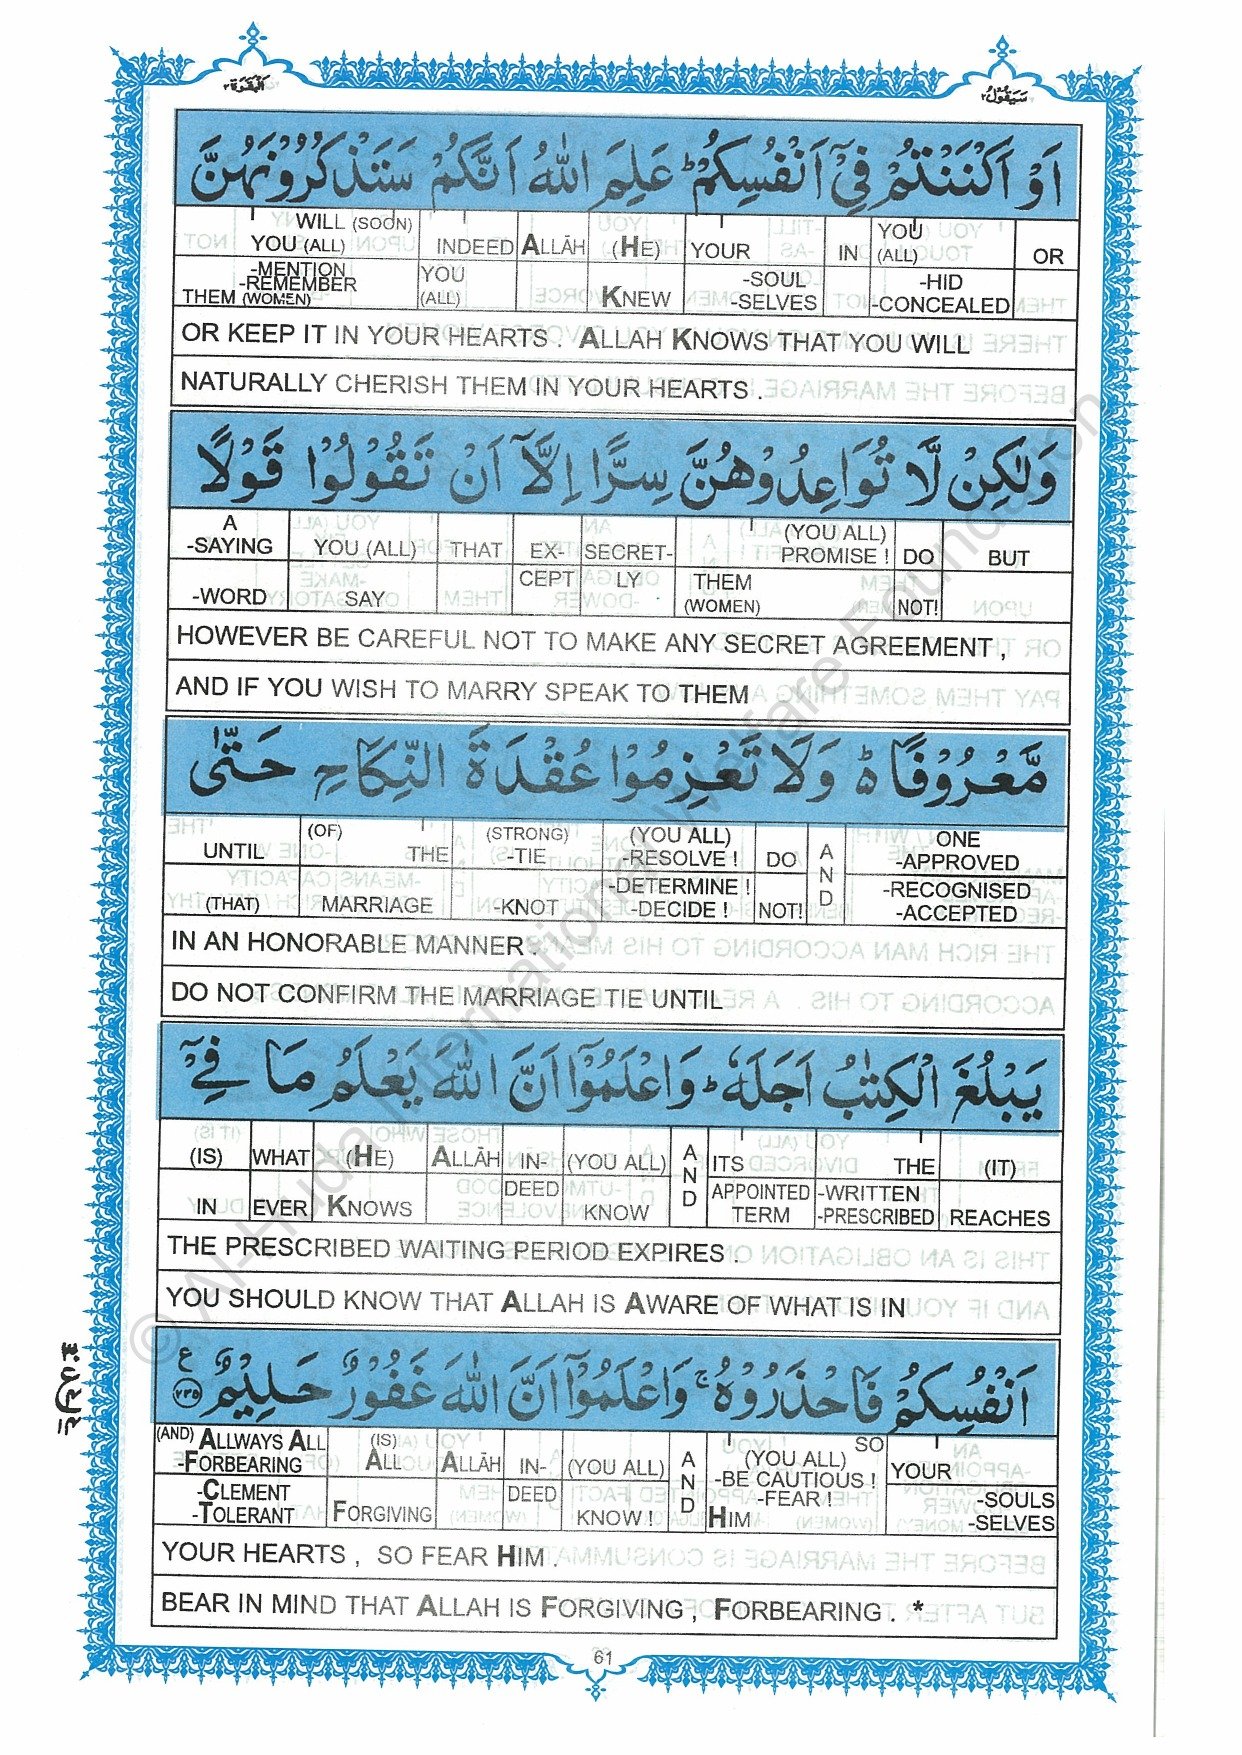 البقرة ٢
سيقول ٢
اَوْ اَكْنَنْتُمْ فِيْٓ اَنْفُسِكُمْ ؕ عَلِمَ اللّٰهُ اَنَّكُمْ سَتَذْكُرُوْنَهُنَّ
WILL (SOON) YOU (ALL) INDEED ALLĀH (HE) YOUR IN YOU (ALL) OR
-MENTION -REMEMBER THEM (WOMEN) YOU (ALL) KNEW -SOUL -SELVES -HID -CONCEALED
OR KEEP IT IN YOUR HEARTS . ALLAH KNOWS THAT YOU WILL
NATURALLY CHERISH THEM IN YOUR HEARTS .
وَلٰكِنْ لَّا تُوَاعِدُوْهُنَّ سِرًّا اِلَّآ اَنْ تَقُوْلُوْا قَوْلًا
A -SAYING YOU (ALL) THAT EX- SECRET- (YOU ALL) PROMISE ! DO BUT
-WORD SAY CEPT LY THEM (WOMEN) NOT!
HOWEVER BE CAREFUL NOT TO MAKE ANY SECRET AGREEMENT ,
AND IF YOU WISH TO MARRY SPEAK TO THEM
مَّعْرُوْفًا ؕ وَلَا تَعْزِمُوْا عُقْدَةَ النِّكَاحِ حَتّٰى
UNTIL (OF) THE (STRONG) -TIE (YOU ALL) -RESOLVE ! DO AND ONE -APPROVED
(THAT) MARRIAGE -KNOT -DETERMINE ! -DECIDE ! NOT! -RECOGNISED -ACCEPTED
IN AN HONORABLE MANNER .
DO NOT CONFIRM THE MARRIAGE TIE UNTIL
يَبْلُغَ الْكِتٰبُ اَجَلَهٗ ؕ وَاعْلَمُوْٓا اَنَّ اللّٰهَ يَعْلَمُ مَا فِيْٓ
(IS) WHAT (HE) ALLĀH IN- (YOU ALL) AND ITS THE (IT)
IN EVER KNOWS DEED KNOW APPOINTED TERM -WRITTEN -PRESCRIBED REACHES
THE PRESCRIBED WAITING PERIOD EXPIRES .
YOU SHOULD KNOW THAT ALLAH IS AWARE OF WHAT IS IN
اَنْفُسِكُمْ فَاحْذَرُوْهُ ۚ وَاعْلَمُوْٓا اَنَّ اللّٰهَ غَفُوْرٌ حَلِيْمٌ ٢٣٥ ع
(AND) ALLWAYS ALL -FORBEARING (IS) ALL ALLĀH IN- (YOU ALL) AND SO (YOU ALL) -BE CAUTIOUS ! YOUR
-CLEMENT -TOLERANT FORGIVING DEED KNOW ! -FEAR ! HIM -SOULS -SELVES
YOUR HEARTS , SO FEAR HIM .
BEAR IN MIND THAT ALLAH IS FORGIVING , FORBEARING . *
61
© Al-Huda International Welfare Foundation